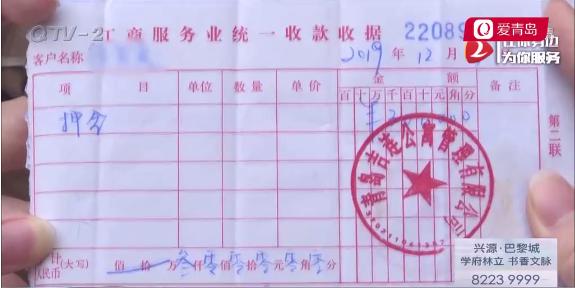 QTV-2
工商服务业统一收款收据 22089
爱青岛
客户名称
2019年12月
2
为你服务
项目 单位 数量 单价 金额 备注
百十万千百十元角分
押金
第二联
青岛吉连公寓管理有限公司
计
人民币(大写) 佰拾万叁仟零佰零拾零元零角零分
兴源·巴黎城
学府林立 书香文脉
8223 9999